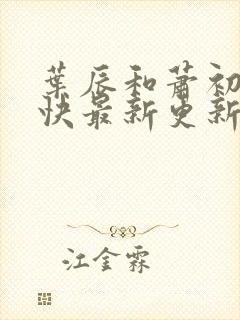 葉辰和蕭初
快最新更新
江金霖